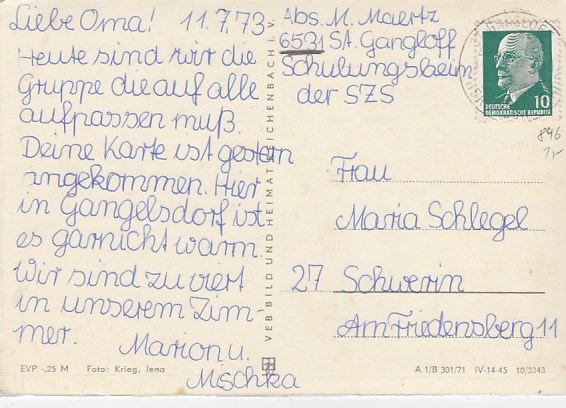 Liebe Oma! 11.7.73
Heute sind wir die
Gruppe die auf alle
aufpassen muß.
Deine Karte ist gestern
angekommen. Hier
in Gangelsdorf ist
es garnicht warm.
Wir sind zu viert
in unserem Zim-
mer.
Marion u.
Mischka
Abs. M. Maertz
6531 St. Gangloff
Schulungsheim
der SZS
DEUTSCHE
DEMOKRATISCHE REPUBLIK
10
846
1,-
Frau
Maria Schlegel
27 Schwerin
Am Friedensberg 11
VEB BILD UND HEIMAT REICHENBACH I. V.
EVP -,25 M Foto: Krieg, Jena
A 1/B 301/71 IV-14-45 10/3343